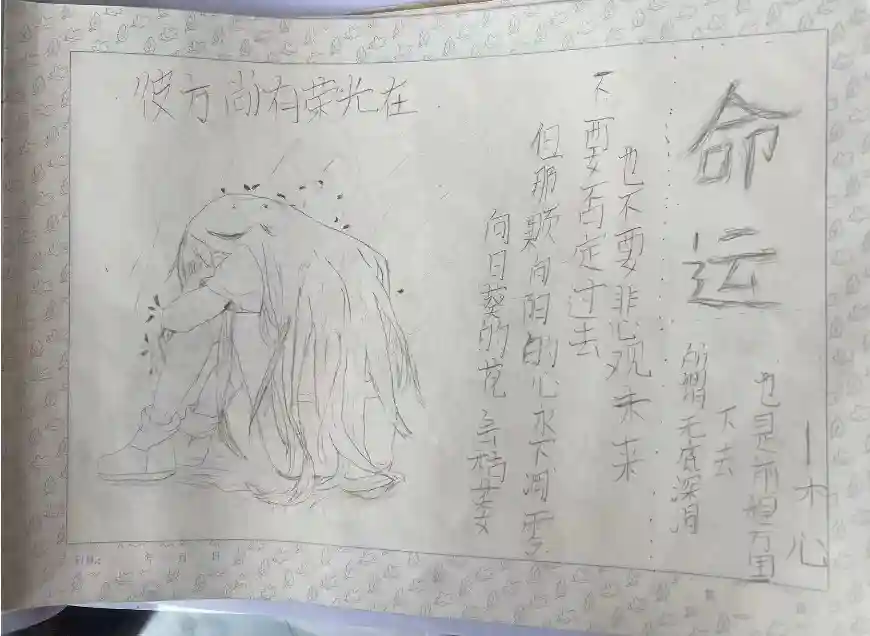 彼方尚有荣光在
向日葵的花 会枯萎
但那颗向阳的心永不凋零
不要否定过去
也不要悲观未来
命运
所谓无底深渊
下去
也是前程万里
—木心